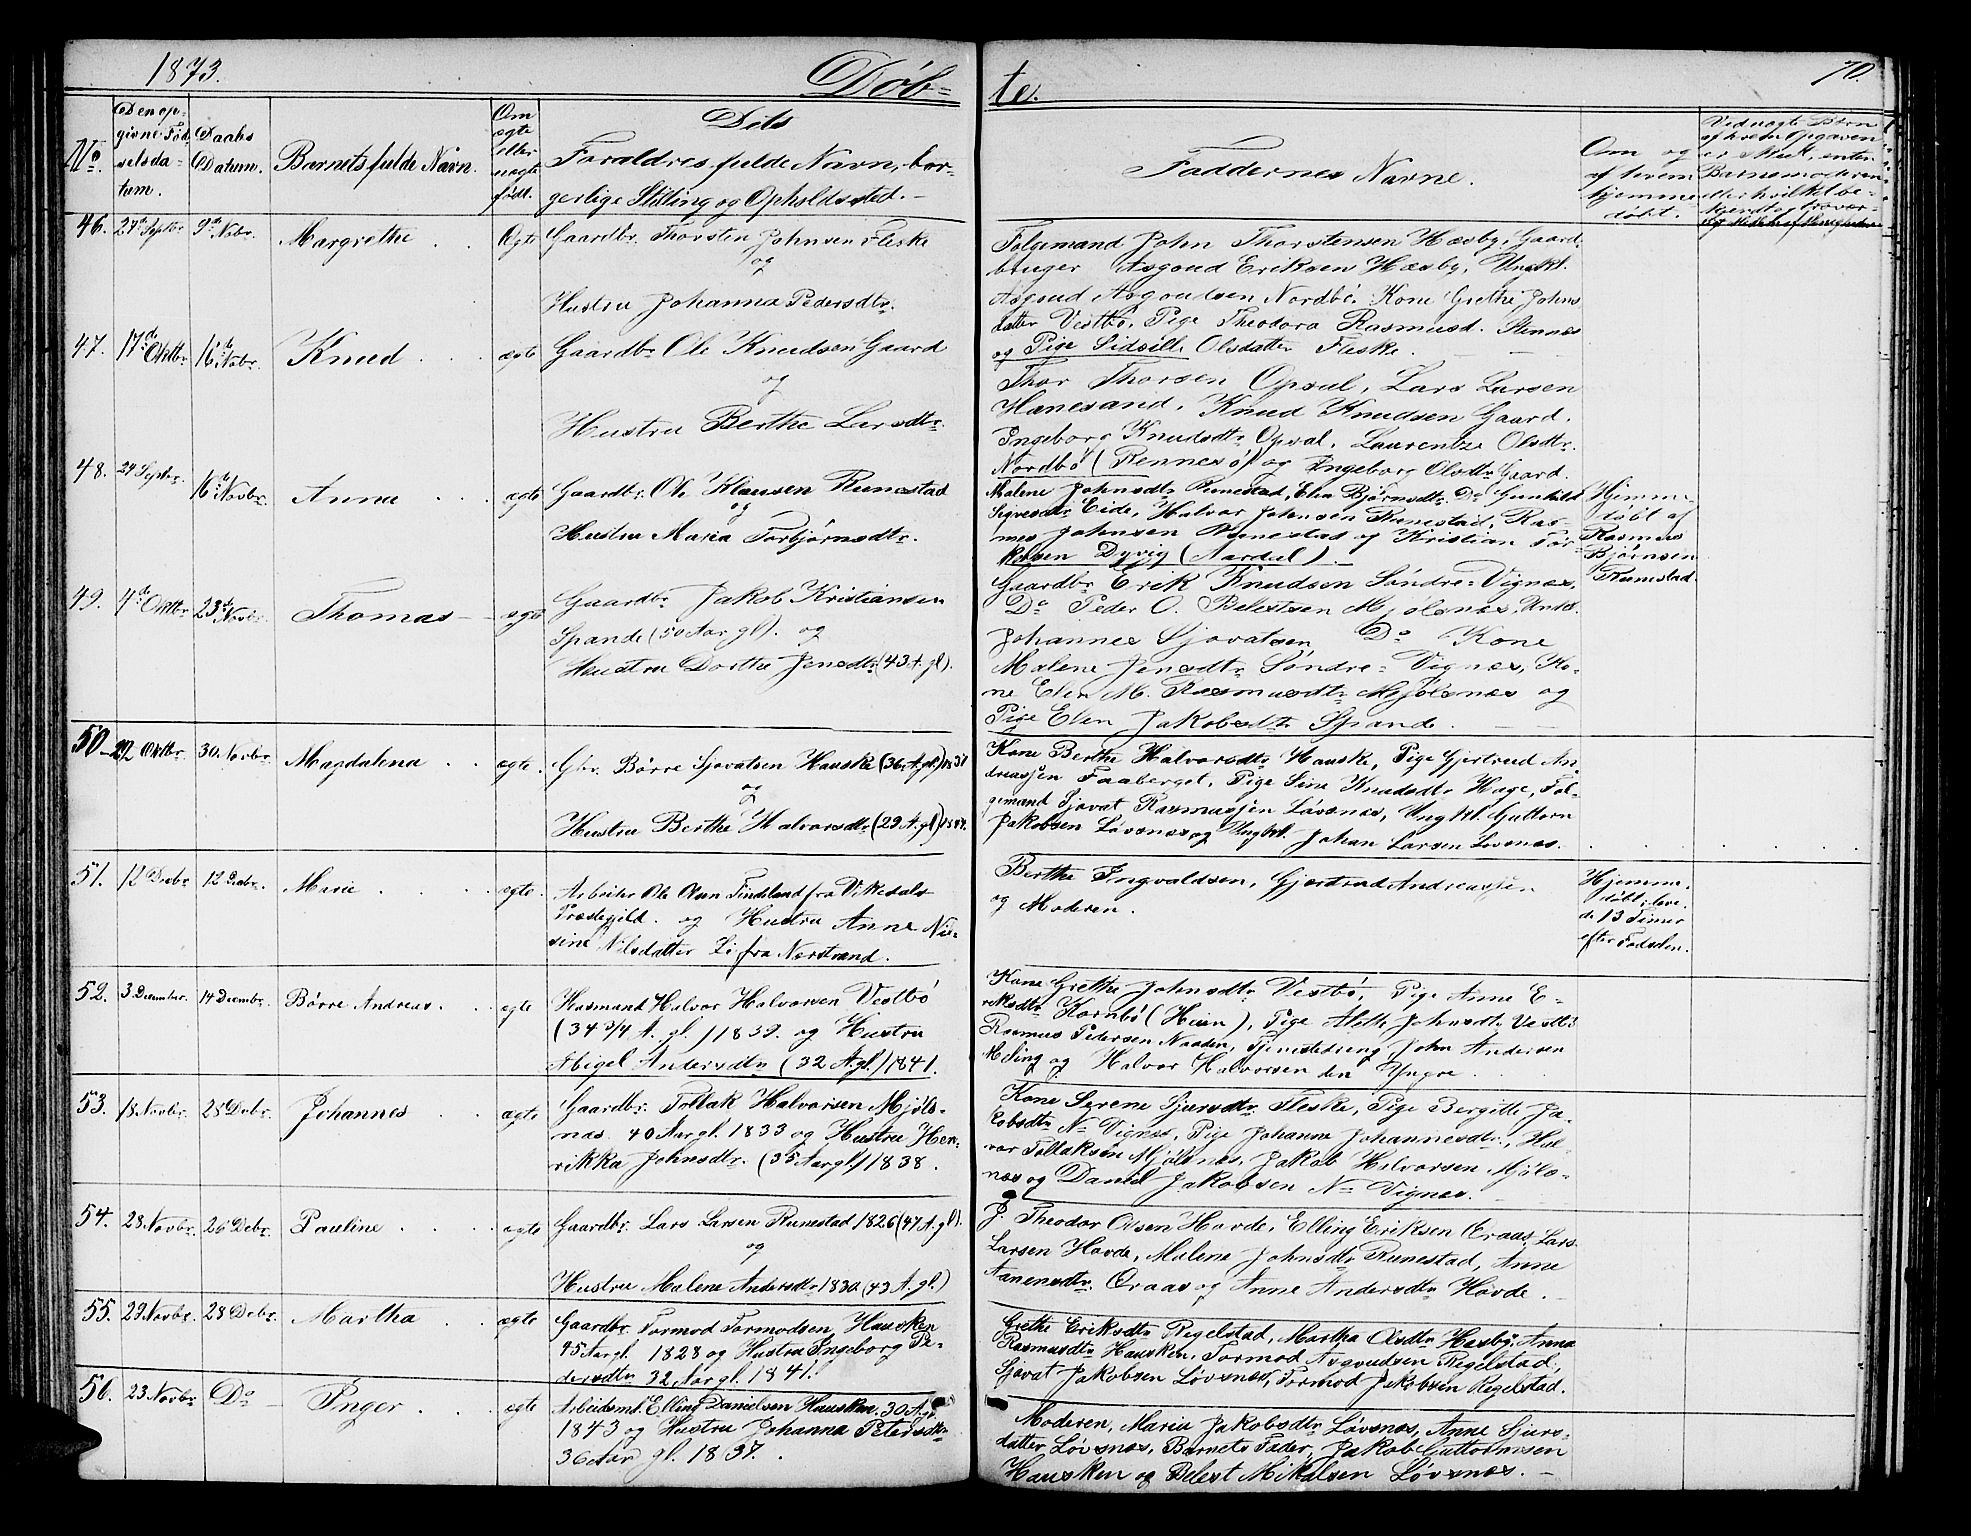 1873.
Døb-
te.
70.
No.
Den op-
givne Fød
selsda-
tum.
Daabs
Datum.
Barnets fulde Navn.
Om
ægte
eller
uægte
født.
Dets
Forældres fulde Navn, bor-
gerlige Stilling og Opholdssted. -
Faddernes Navne.
Om og
af hvem
hjemme
døbt.
Ved uægte Børn
af hvem Opgaven
er skeet, enten
Barnemoderen
eller hvilket be-
46. 27de Septbr. 9de Nobr. Margrethe . . Ægte Gaardbr. Thorsten Johnsen Fleske
og
Hustru Johanna Pedersdtr.
Følgemand John Thorstensen Hæsby, Gaard-
bruger Asgoud Eriksen Hæsby, Ungkl.
Asgoud Asgoudsen Nordbö. Kone Grethe Johns
datter Vestbö, Pige Theodora Rasmusd. Stennes
og Pige Sidsille Olsdatter Fleske.
47. 17de Oktbr. 16de Novbr. Knud . . ægte Gaardbr. Ole Knudsen Gaard
og
Hustru Berthe Larsdtr.
Thor Thorsen Opsal, Lars Larsen
Hanesand. Knud Knudsen Gaard.
Ingeborg Knudsdtr Opsal, Laurentze Olsdtr.
Nordbö (Rennesö) og Ingeborg Olsdtr Gaard.
48. 24 Septbr. 16de Novbr. Anna . . ægte Gaardbr. Ole Klausen Runestad
og
Hustru Maria Torbjörnsdtr.
Malene Johnsdtr Runestad, Elen Björnsdtr Do Gunhild
Eide, Halvor Johnsen Runestad, Ras-
mus Johnsen Runestad og Kristian Tor-
kelsen Dyvig (Aardal). -
Hjemme-
döbt af
Rasmus
Björnsen
Runestad.
49. 4de Oktbr. 23de Novbr. Thomas - ægte Gaardbr. Jakob Kristiansen
Spande (50 Aar gl). og
Hustru Dorthe Jensdtr (43 A. gl).
Gaardbr. Erik Knudsen Söndre-Vignes,
Do Peder O. Belestsen Mjölsnes,
Johannes Sjovatsen Do Kone
Malene Jensdtr Söndre-Vignes, Ko-
ne Elen M. Rasmusdtr Mjölsnes og
Pige Elen Jakobsdtr Spande.
50- 22 Oktbr. 30. Novbr. Magdalena . . ægte. Gbr. Börre Sjovatsen Hauske (36 A. gl) 1837
og
Hustru Berthe Halvorsdtr (29 A. gl) 1844.
Kone Berthe Halvorsdtr Hauske, Pige Gjertrud An-
dreassen Faaberget, Pige Sine Knudsdtr Hage, Föl-
gemand Sjovat Rasmussen Lövsnes, Ung kl. Guttorm
Jakobsen Lövsnes og Ungkl. Johan Larsen Lövsnes.
51. 12 Decbr. 12 Decbr. Marie . . ægte. Arbeider Ole Olsen Tindeland fra Vikedals
Præstegjeld. og Hustru Anne Nil-
sine Nilsdatter Li fra Nærstrand.
Berthe Ingvaldsen, Gjertrud Andreassen
og Moderen.
Hjemme-
döbt; leve-
de 13 Timer
efter Fødselen.
52. 3 December. 14 Decembr. Börre Andreas . . ægte Husmand Halvor Halvorsen Vestbö
(34 3/4 A. gl) 1839. og Hustru
Abigel Andersdtr (32 A. gl.) 1841.
Kone Grethe Johnsdtr Vestbö, Pige Anne E-
riksdtr Kornbö (Heien), Pige Aleth Johnsdtr Vestbö
Rasmus Pedersen Naaden, Tjenestedreng John Andersen
Meling og Halvor Halvorsen den Yngre.
53. 18 Novbr. 28 Debr. Johannes . . ægte Gaardbr. Tollak Halvorsen Mjöls-
nes. 40 Aar gl. 1833 og Hustru Hen-
rikka Johnsdtr. (35 Aar gl.) 1838.
Kone Serene Sjursdtr. Fleske, Pige Bergitte Ja-
kobsdtr N. Vignes, Pige Johanne Johannesdtr., Hal-
vor Tollaksen Mjölsnes, Jakob Halvorsen Mjöls-
nes og Daniel Jakobsen N. Vignes.
54. 28 Novbr. 26 Debr. Pauline . . ægte Gaardbr. Lars Larsen Runestad 1826 (47 A. gl).
og
Hustru Malene Andersdtr 1830 (43 A. gl.)
J. Theodor Olsen Hovde, Elling Eriksen Øraas, Lars
Larsen Hovde, Malene Johnsdtr Runestad, Anne
Aanensdtr. Øraas og Anne Andersdtr Hovde.
55. 29 Novbr. 28 Debr. Martha . . ægte Gaardbr. Tormod Tormodsen Hausken
45 Aar gl. 1828 og Hustru Ingeborg Pe-
dersdtr 32 Aar gl. 1841.
Grethe Eriksdtr Regelstad, Martha Olsdtr Hæsby, Anna
Rasmusdtr Hausken, Tormod Asgoudsen Regelstad,
Sjovat Jakobsen Lövsnes, Tormod Jakobsen Regelstad.
56. 23. Novbr. Do - Inger . . ægte Arbeidsmd. Elling Danielsen Hausken. 30 Aar
1843 og Hustru Johanna Petersdtr
36 Aar gl. 1837.
Moderen, Maria Jakobsdtr Lövsnes, Anne Sjurs-
datter Lövsnes, Barnets Fader, Jakob Guttormsen
Hausken og Belest Mikalsen Lövsnes. -